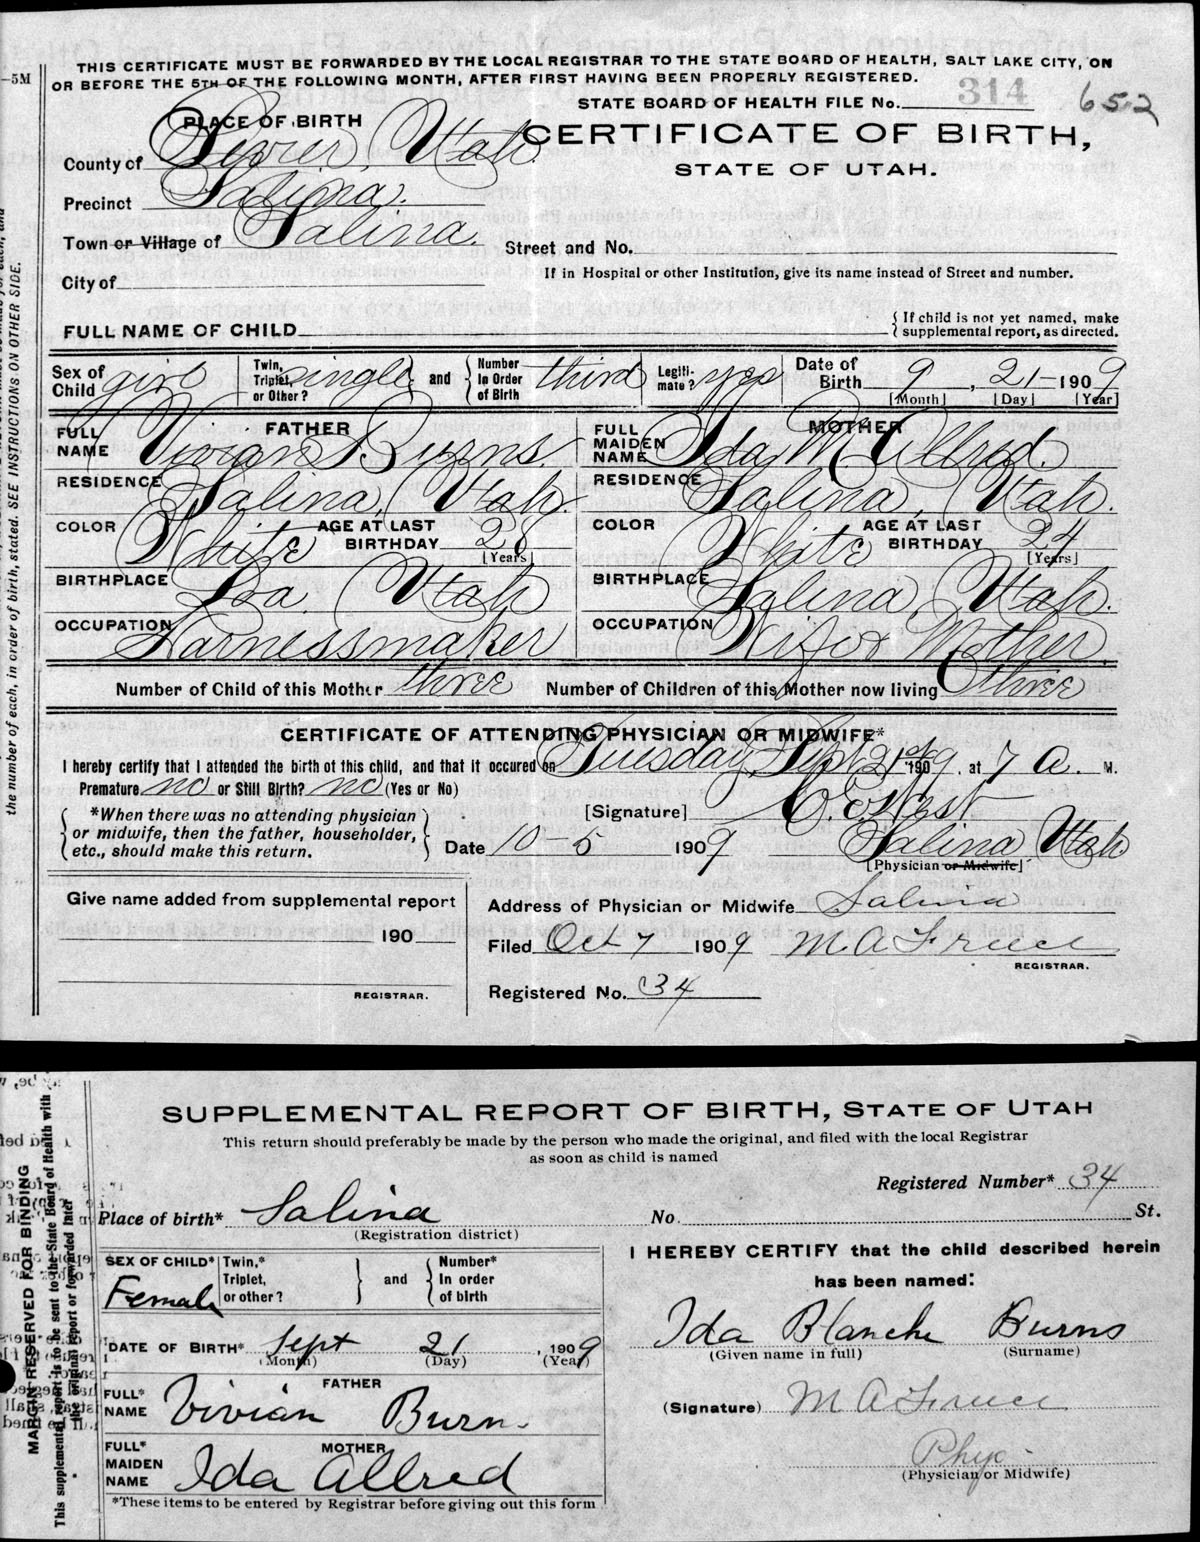 -5M
THIS CERTIFICATE MUST BE FORWARDED BY THE LOCAL REGISTRAR TO THE STATE BOARD OF HEALTH, SALT LAKE CITY, ON
OR BEFORE THE 5TH OF THE FOLLOWING MONTH, AFTER FIRST HAVING BEEN PROPERLY REGISTERED.
STATE BOARD OF HEALTH FILE No. 314 652
PLACE OF BIRTH
CERTIFICATE OF BIRTH,
STATE OF UTAH.
County of Sevier, Utah.
Precinct Salina.
Town or Village of Salina.
Street and No.
City of
If in Hospital or other Institution, give its name instead of Street and number.
FULL NAME OF CHILD
{ If child is not yet named, make
supplemental report, as directed.
Sex of Child girl
Twin, Triplet, or Other? single and Number In Order of Birth third
Legitimate? yes
Date of Birth 9, 21- 1909
[Month] [Day] [Year]
FATHER
FULL NAME Vivian Burns.
RESIDENCE Salina, Utah.
COLOR White AGE AT LAST BIRTHDAY 28
[Years]
BIRTHPLACE Loa, Utah
OCCUPATION Harnessmaker
MOTHER
FULL MAIDEN NAME Ida M. Allred.
RESIDENCE Salina, Utah.
COLOR White AGE AT LAST BIRTHDAY 24
[Years]
BIRTHPLACE Salina, Utah.
OCCUPATION Wife & Mother.
Number of Child of this Mother three Number of Children of this Mother now living three
CERTIFICATE OF ATTENDING PHYSICIAN OR MIDWIFE*
I hereby certify that I attended the birth of this child, and that it occured on Tuesday, Sept. 21st 1909, at 7 A. M.
Premature no or Still Birth? no (Yes or No)
*When there was no attending physician
or midwife, then the father, householder,
etc., should make this return.
[Signature] C. E. West
Date 10-5 1909 Salina Utah
[Physician or Midwife]
Give name added from supplemental report
190
REGISTRAR.
Address of Physician or Midwife Salina
Filed Oct 7 1909 M A
REGISTRAR.
Registered No. 34
the number of each, in order of birth, stated. SEE INSTRUCTIONS ON OTHER SIDE.
SUPPLEMENTAL REPORT OF BIRTH, STATE OF UTAH
This return should preferably be made by the person who made the original, and filed with the local Registrar
as soon as child is named
Registered Number* 34
Place of birth* Salina No. St.
(Registration district)
SEX OF CHILD* Female
Twin,* Triplet, or other? and Number* In order of birth
DATE OF BIRTH* Sept 21, 1909
(Month) (Day) (Year)
FATHER
FULL* NAME Vivian Burns
MOTHER
FULL* MAIDEN NAME Ida Allred
*These items to be entered by Registrar before giving out this form
I HEREBY CERTIFY that the child described herein
has been named:
Ida Blanche Burns
(Given name in full) (Surname)
(Signature) M A
Phys.
(Physician or Midwife)
MARGIN RESERVED FOR BINDING
This supplemental report is to be sent to the State Board of Health with
the original report or forwarded later